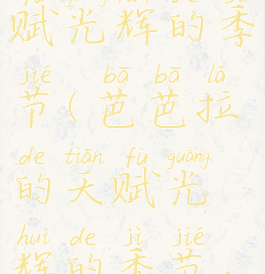 赋光辉的季
jié bā bā lā
节(芭芭拉
de tiān fù guāng
的天赋光
huī de jì jié
辉的季节